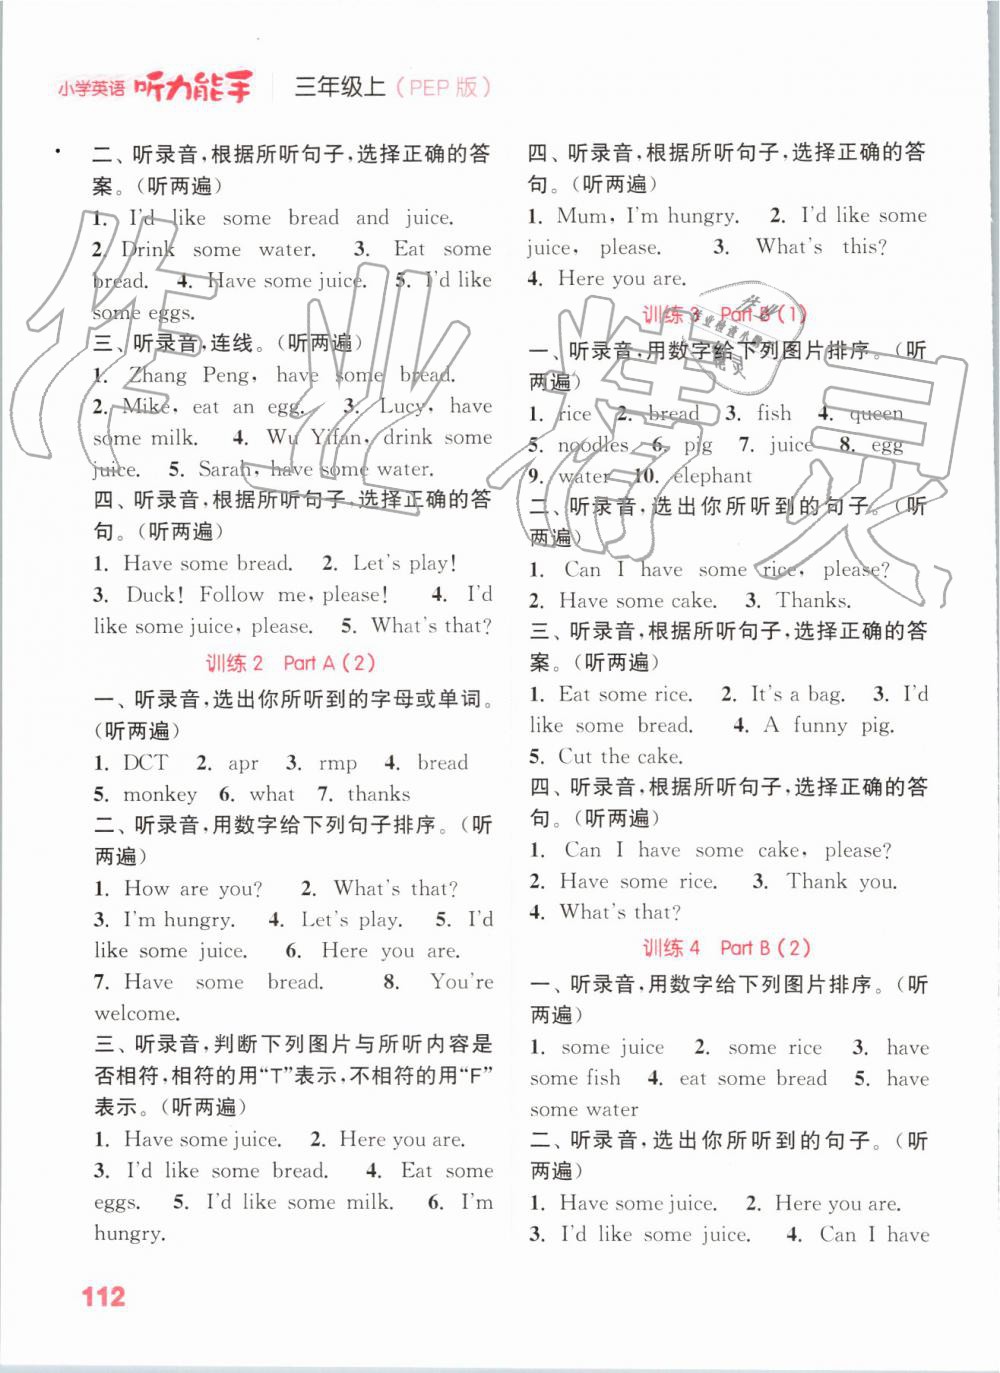 小学英语 听力能手 三年级上（PEP 版）
二、听录音，根据所听句子，选择正确的答
案。（听两遍）
1. I'd like some bread and juice.
2. Drink some water. 3. Eat some
bread. 4. Have some juice. 5. I'd like
some eggs.
三、听录音，连线。（听两遍）
1. Zhang Peng, have some bread.
2. Mike, eat an egg. 3. Lucy, have
some milk. 4. Wu Yifan, drink some
juice. 5. Sarah, have some water.
四、听录音，根据所听句子，选择正确的答
句。（听两遍）
1. Have some bread. 2. Let's play!
3. Duck! Follow me, please! 4. I'd
like some juice, please. 5. What's that?
训练 2 Part A (2)
一、听录音，选出你所听到的字母或单词。
（听两遍）
1. DCT 2. apr 3. rmp 4. bread
5. monkey 6. what 7. thanks
二、听录音，用数字给下列句子排序。（听
两遍）
1. How are you? 2. What's that?
3. I'm hungry. 4. Let's play. 5. I'd
like some juice. 6. Here you are.
7. Have some bread. 8. You're
welcome.
三、听录音，判断下列图片与所听内容是
否相符，相符的用“T”表示，不相符的用“F”
表示。（听两遍）
1. Have some juice. 2. Here you are.
3. I'd like some bread. 4. Eat some
eggs. 5. I'd like some milk. 6. I'm
hungry.
四、听录音，根据所听句子，选择正确的答
句。（听两遍）
1. Mum, I'm hungry. 2. I'd like some
juice, please. 3. What's this?
4. Here you are.
训练 3 Part B (1)
一、听录音，用数字给下列图片排序。（听
两遍）
1. rice 2. bread 3. fish 4. queen
5. noodles 6. pig 7. juice 8. egg
9. water 10. elephant
二、听录音，选出你所听到的句子。（听
两遍）
1. Can I have some rice, please?
2. Have some cake. 3. Thanks.
三、听录音，根据所听句子，选择正确的答
案。（听两遍）
1. Eat some rice. 2. It's a bag. 3. I'd
like some bread. 4. A funny pig.
5. Cut the cake.
四、听录音，根据所听句子，选择正确的答
句。（听两遍）
1. Can I have some cake, please?
2. Have some rice. 3. Thank you.
4. What's that?
训练 4 Part B (2)
一、听录音，用数字给下列图片排序。（听
两遍）
1. some juice 2. some rice 3. have
some fish 4. eat some bread 5. have
some water
二、听录音，选出你所听到的句子。（听
两遍）
1. Have some juice. 2. Here you are.
3. I'd like some juice. 4. Can I have
112
作业精灵